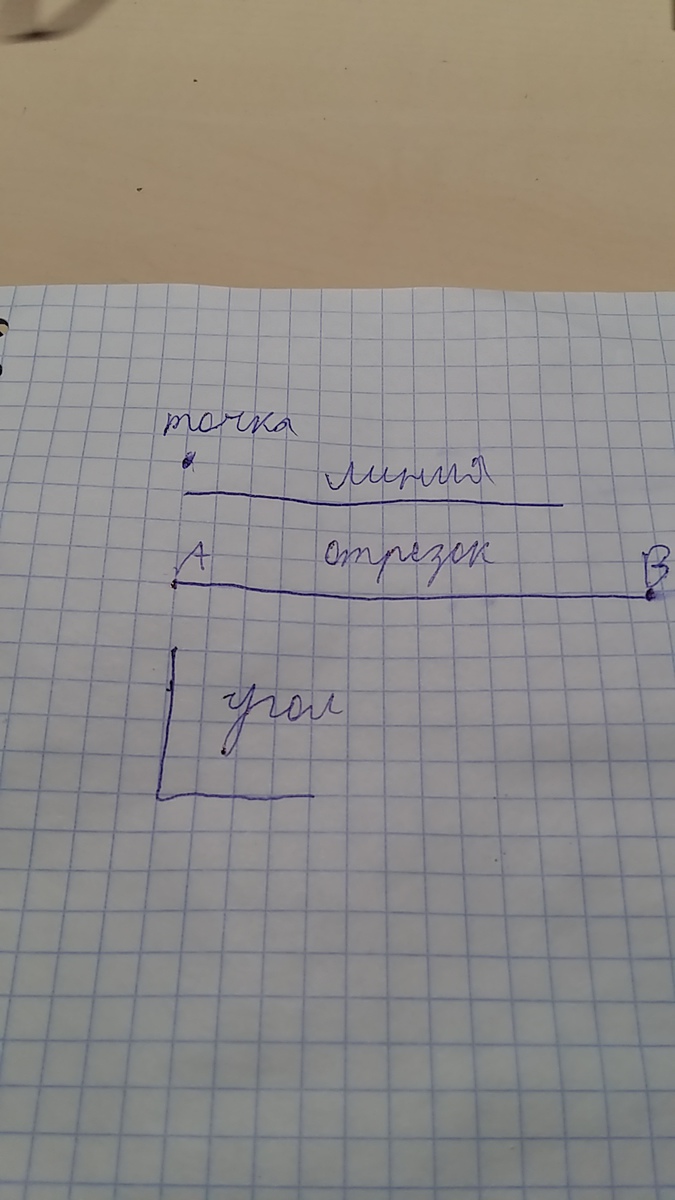 точка
линия
A отрезок B
угол